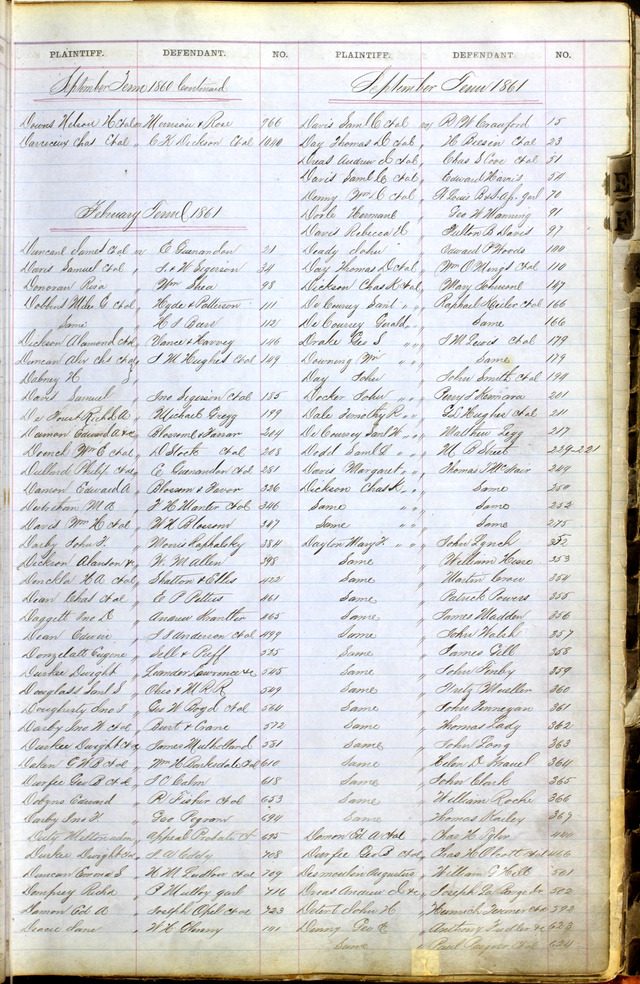 PLAINTIFF. DEFENDANT. NO.
September Term 1860 Continued
Downs Nelson H et al vs Morrison & Rose 966
Darrieux Chas et al " C H Dickson et al 1040
February Term 1861
Duncan James et al vs E Guenandon 21
Davis Samuel et al " S & W Segerson 34
Donovan Rosa " Wm Shea 98
Dobbins Miles G et al " Hyde & Patterson 111
Same " H S Barr 112
Dickson Alamond et al " Vance & Harvey 146
Duncan Alex Chs et al " S M Hughes et al 149
Dabney H
Davis Samuel " Jno Segerson et al 185
De Foust Richd A " Michael Gregg 199
Damon Edward A & c " Blossom & Farrar 204
Doench Wm C et al " D Stock et al 208
Dullard Philip et al " E Guenandon et al 281
Damon Edward A " Blossom & Favor 326
Dutcham M B " F H Manter et al 346
Davis Wm H et al " W H Blossom 347
Darby John F " Morris Raphalsky 384
Dickson Alanson & " W M Allen 398
Donckla H A et al " Shelton & Ellis 422
Dean Chas et al " E P Pettis 461
Daggett Jno D " Andrew Krantter 465
Dean Edwin " S S Anderson et al 499
Donzelatt Eugene " Sell & Ruff 535
Durkee Dwight " Leander Lawrence & c 545
Douglass Saml S " Ohio & M R R 549
Dougherty Jno S " Geo W Boyd et al 564
Darby Jno W et al " Burt & Crane 572
Durkee Dwight & c " James Mulholland 581
Daken G W B et al " Wm H Barksdale et al 610
Durfee Geo B et al " S C Eaton 618
Dobyns Edward " R Fisher et al 653
Darby Jno F " Geo Pegram 694
Deitz Melton adm " Appeal Probate Ct 695
Durkee Dwight et al " S A Eddy 708
Duncan Emma S " H M Ladlin et al 709
Dempsey Richd " P Murtry garl 716
Damon Ed A " Joseph Apel et al 723
Deacie Jane " W H Chenny 191
PLAINTIFF. DEFENDANT NO.
September Term 1861
Davis Saml C et al vs R W Crawford 15
Day Thomas D et al " H Beesen et al 23
Dreas Andrew & et al " Chas S Cove et al 51
Davis Saml C et al " Edward Harris 54
Denny Wm D et al " St Louis B & S Ass. garl 70
Doyle Hermann " Geo W Wanning 91
Davis Rebecca D " Fulton B Davis 97
Deady John " Edward P Woods 100
Day Thomas D et al " Wm O Mings et al 110
Dickson Chas K et al " Mary Johnson 147
De Coursey Saml " " Raphael Keiler et al 166
De Coursey Gerald " " Same 166
Drake Geo S " " S M Lewis et al 179
Downing Wm " " Same 179
Day John " John Smith et al 194
Docker John " " Perry & Hamara 201
Dale Timothy R " " Ed Hughes et al 211
De Coursey Saml W " " Matthew Legg 217
Dodd Saml D " M B Steel 239-221
Davis Margaret " " Thomas J McNair 249
Dickson Chas K " " Same 250
Same " " Same 252
Same " " Same 275
Dayton Mary F " " John Lynch 35
Same " William Hise 353
Same " Martin Crow 354
Same " Patrick Powers 355
Same " James Madden 356
Same " John Walsh 357
Same " James Gill 358
Same " John Finby 359
Same " Fritz Mueller 360
Same " John Finnegan 361
Same " Thomas Lady 362
Same " John Long 363
Same " Helen D Wavel 364
Same " John Clark 365
Same " William Roche 366
Same " Thomas Railey 367
Damon Ed A et al " Chas H Tyler 440
Durfee Geo B et al " Chas H Olcott et al 466
Desmoulin Augustine " William G Hill 501
Dreas Andrew & c " Joseph La Barge & c 502
Detert John H " Heinrich Turmer et al 592
Denny Geo E " Anthony Sadler & c 623
Same " Paul Wagner et al 624